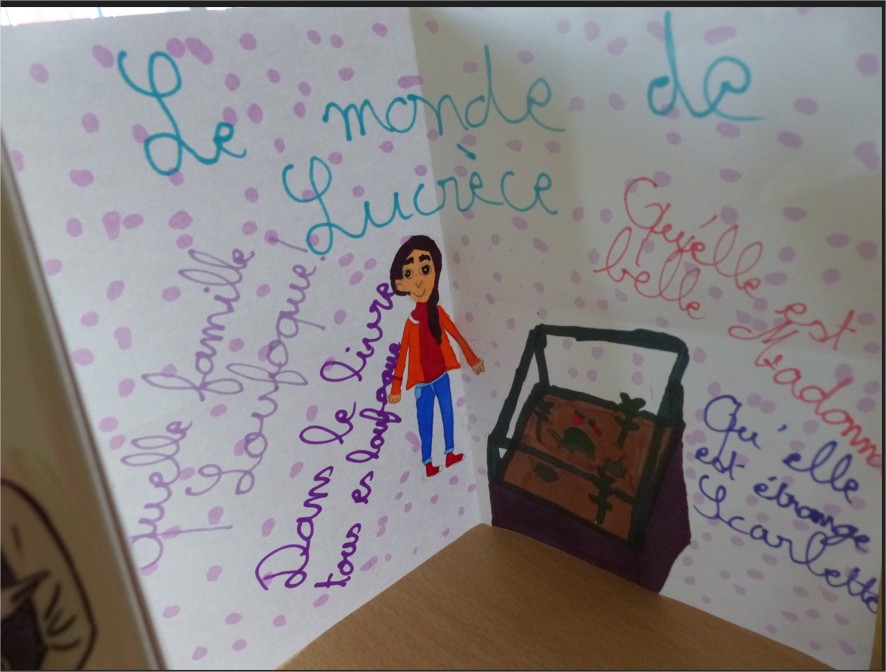 Le monde de
Lucrèce
Quelle famille
Loufoque!
Dans le livre
tous es loufoque
Qu'elle est
belle Madonna
Qu'elle
est étrange
Scarlette